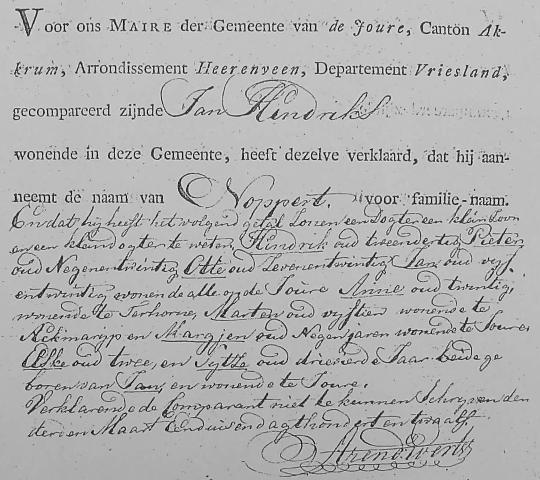 Voor ons MAIRE der Gemeente van de Joure, Canton Ak-
krum, Arrondissement Heerenveen, Departement Vriesland,
gecompareerd zijnde Jan Hendriks
wonende in deze Gemeente, heeft dezelve verklaard, dat hij aan-
neemt de naam van Noppert. voor familie-naam.
En dat hij heeft het volgend getal Zonen een Dogter een klein Zoon
en een klein dogter te weten, Hindrik oud tweendertig Pieter
oud Negenentwintig Otte oud Zevenentwintig Jan oud vijf
entwintig wonende alle op de Joure Anne oud twintig,
wonende te Terhorne, Marten oud vijftien wonende te
Akmarijp en Margjen oud Negen jaren wonende te Joure
Elske oud twee, en Sytze oud drievierde Jaar beide ge
boren van Jan, en wonende te Joure.
Verklarende de Comparant niet te kunnen Schryven den
derden Maart Eenduisend agthondert en twaalf.